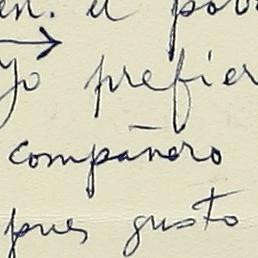 en. el pob
→
Yo prefier
compañero
pues gusto